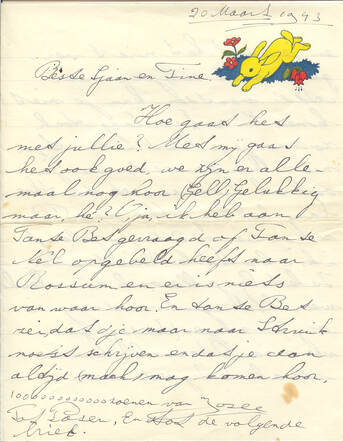 20 Maart 1943
Beste Sjaan en Tine
Hoe gaat het
met jullie? Met my gaat
het ook goed, we zijn er alle-
maal nog hoor (Gell) Gelukkig
maar, hè? O ja, ik heb aan
Tante Bes gevraagd of Tante
opgebeld heeft naar
Rossum en er is niets
van waar hoor. En tante Bes
zei, dat je maar naar
moest schrijven en dat je dan
altijd (maak) mag komen hoor.
1000000000000 zoenen van
Tot de volgende
brief.